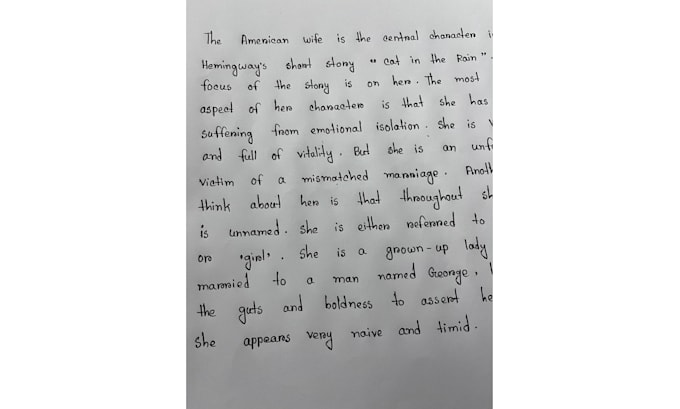 The American wife is the central character i
Hemingway's short story " cat in the Rain".
focus of the story is on her. The most
aspect of her characters is that she has
suffening from emotional isolation. She is
and full of vitality. But she is an unf
victim of a mismatched marriage. Anoth
think about her is that throughout sh
is unnamed. She is either referred to
or 'girl'. She is a grown-up lady
married to a man named George,
the guts and boldness to assert he
She appears very naive and timid.